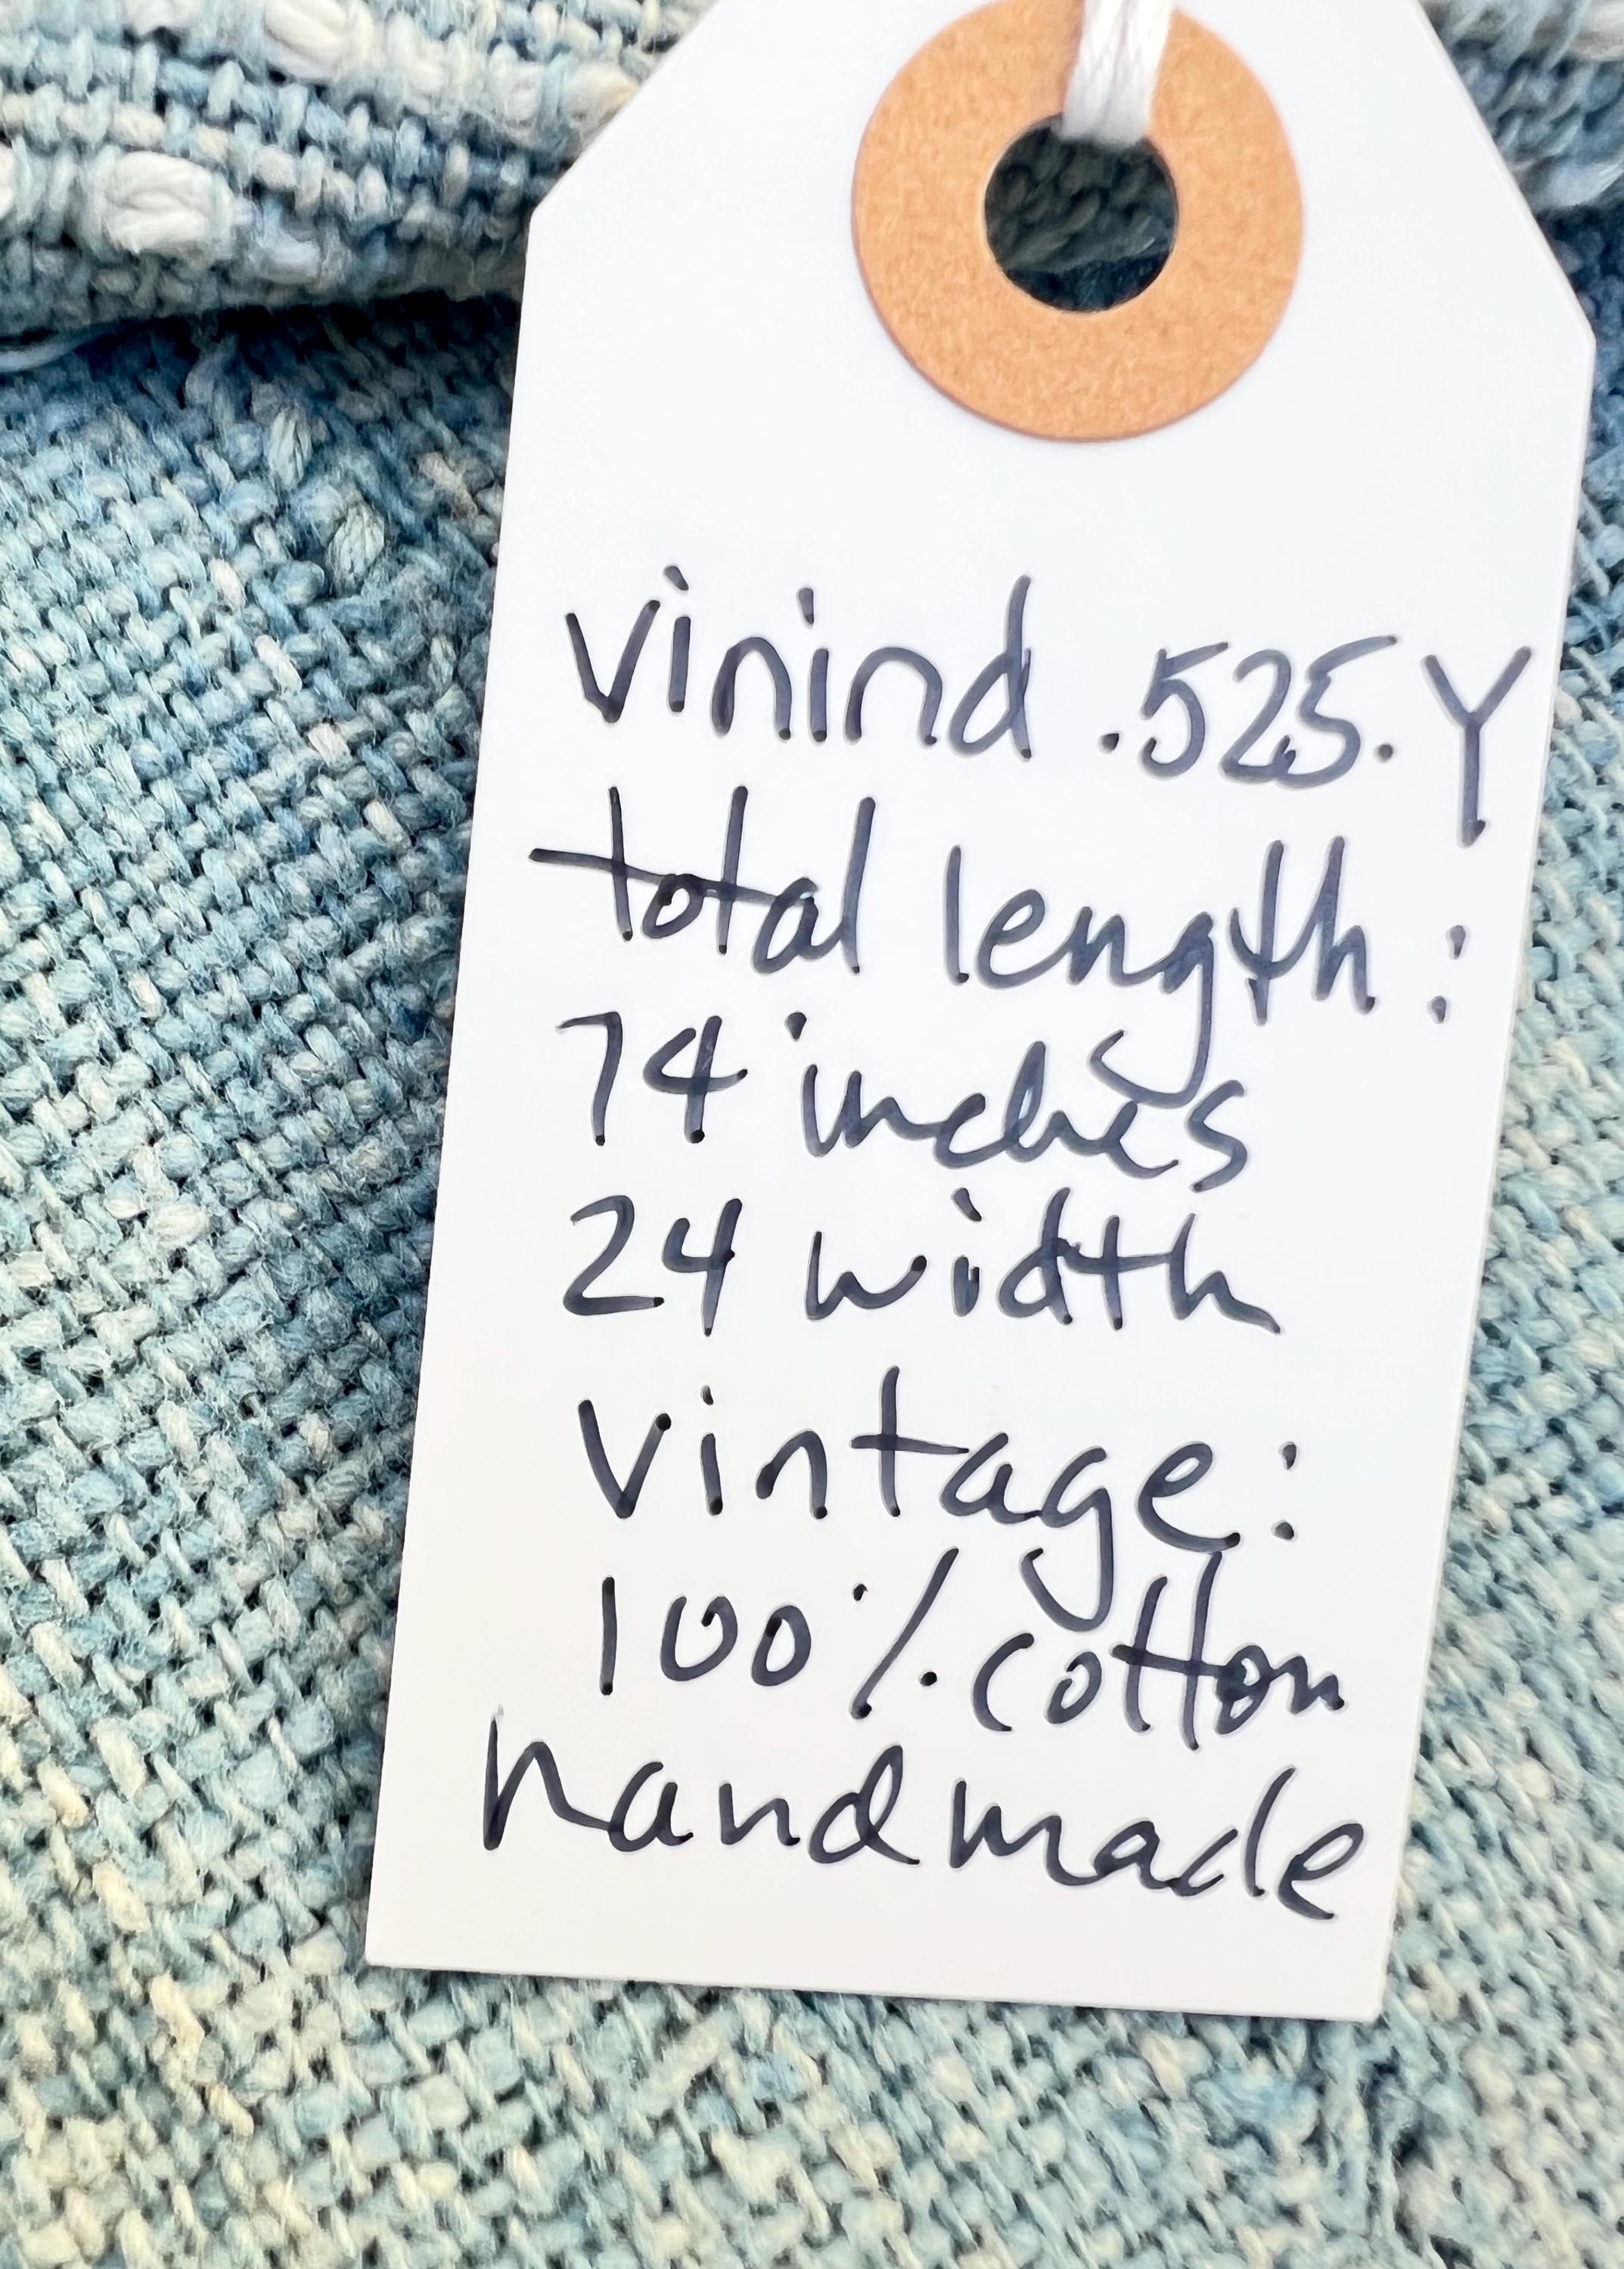 vinind .525.Y
total length:
74 inches
24 width
vintage:
100% cotton
handmade